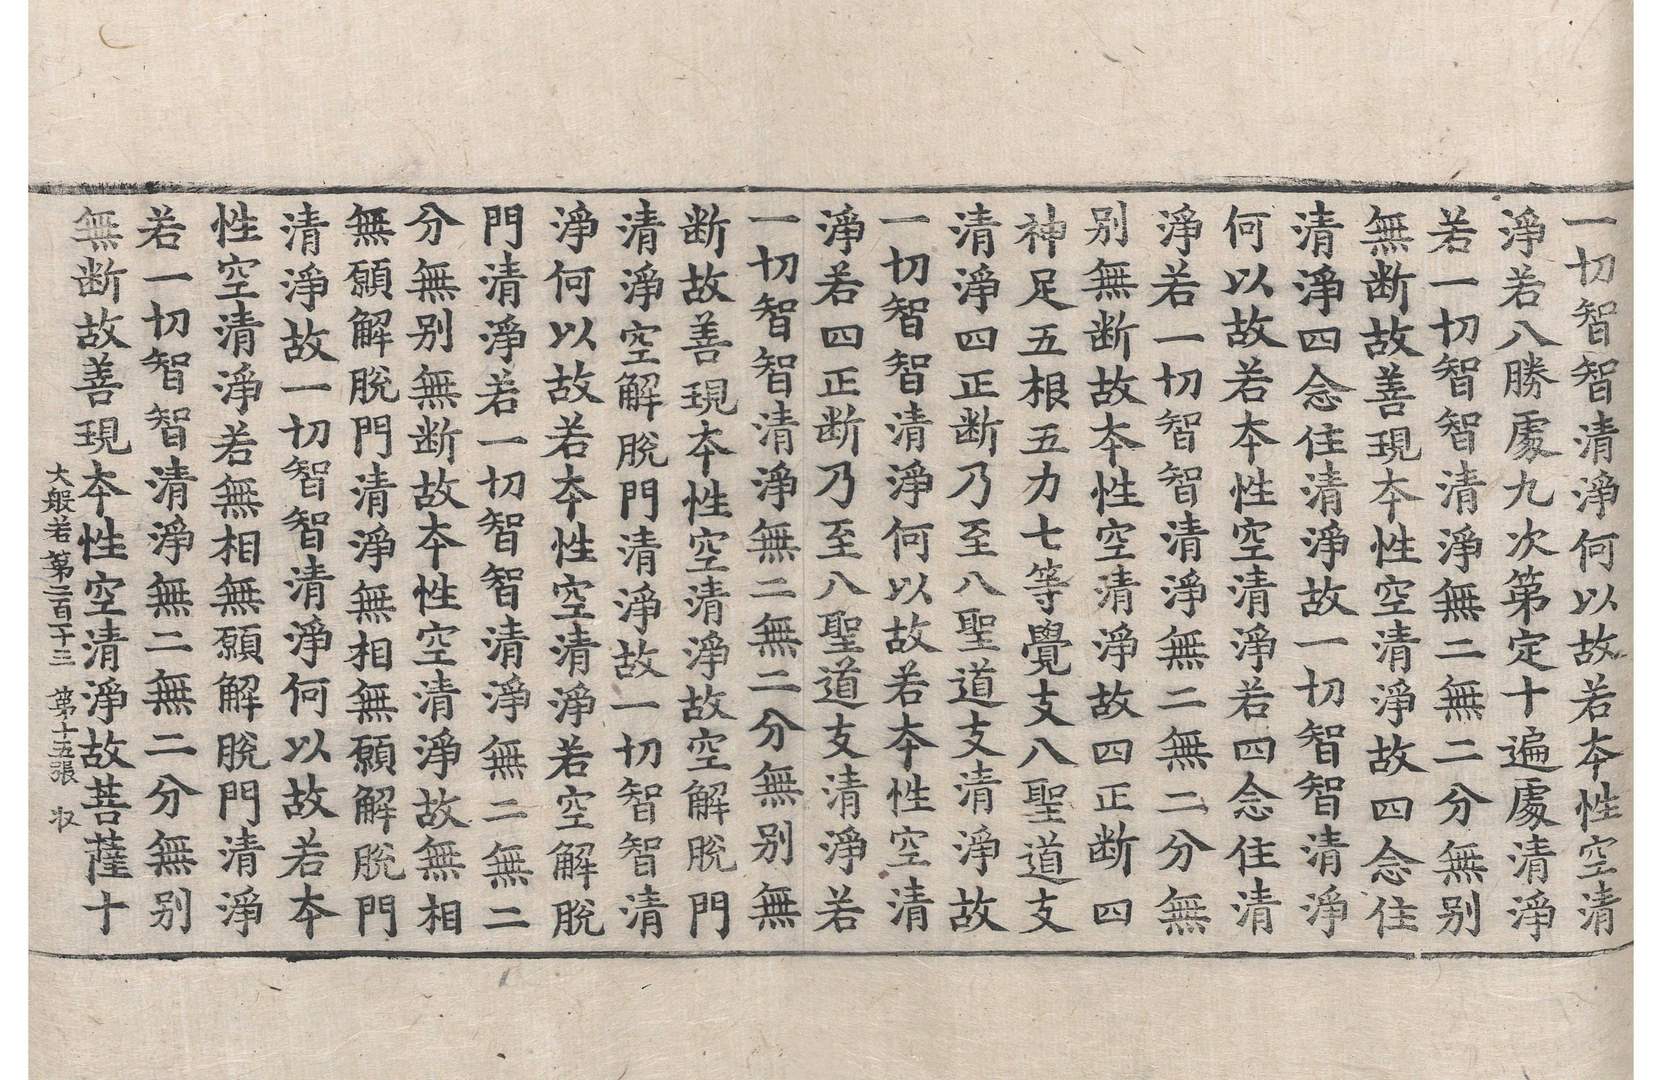 一切智智清淨何以故若夲性空清
淨若八勝處九次第定十遍處清淨
若一切智智清淨無二無二分無别
無断故善現夲性空清淨故四念住
清淨四念住清淨故一切智智清淨
何以故若夲性空清淨若四念住清
淨若一切智智清淨無二無二分無
别無断故夲性空清淨故四正断四
神足五根五力七等覺支八聖道支
清淨四正断乃至八聖道支清淨故
一切智智清淨何以故若夲性空清
淨若四正断乃至八聖道支清淨若
一切智智清淨無二無二分無别無
断故善現夲性空清淨故空解脫門
清淨空解脫門清淨故一切智智清
淨何以故若夲性空清淨若空解脫
門清淨若一切智智清淨無二無二
分無别無断故夲性空清淨故無相
無願解脫門清淨無相無願解脫門
清淨故一切智智清淨何以故若夲
性空清淨若無相無願解脫門清淨
若一切智智清淨無二無二分無别
無断故善現夲性空清淨故菩薩十
大般若第二百一十三 第十五張 收